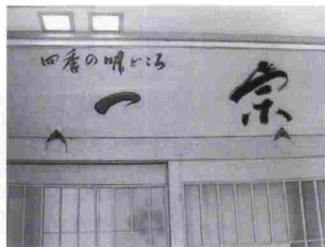 四季の味どころ
一宗